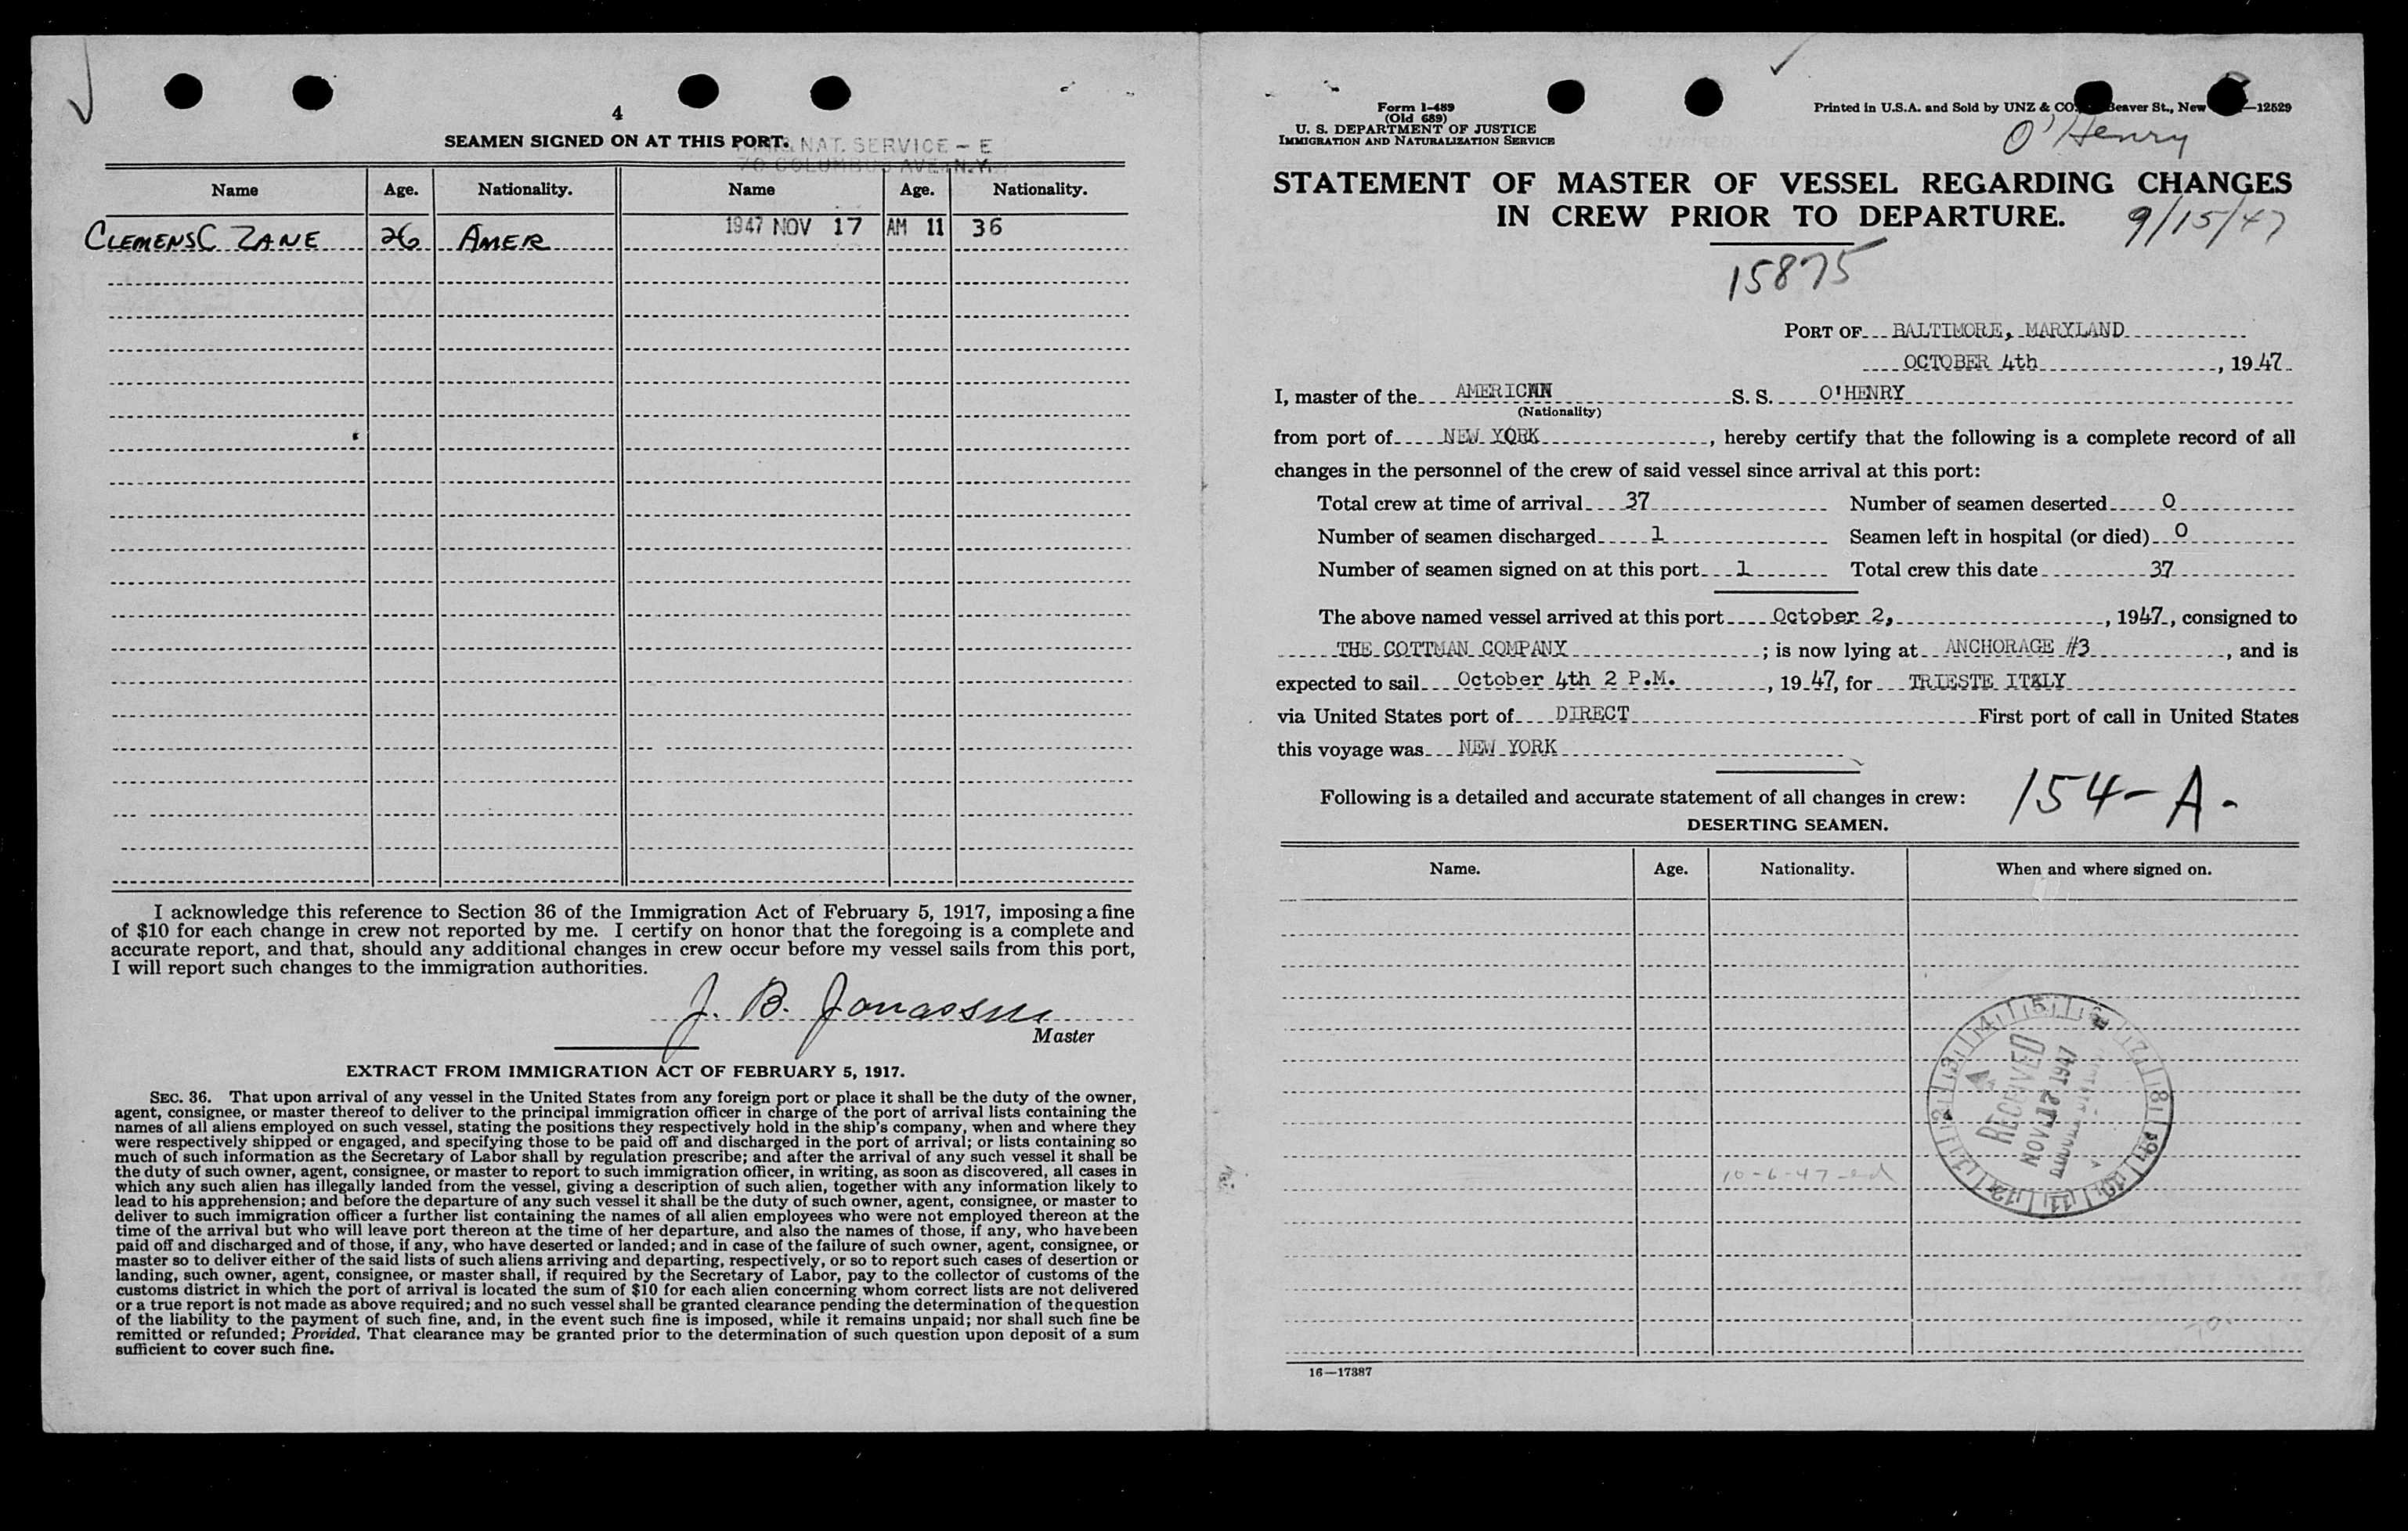 4
SEAMEN SIGNED ON AT THIS PORT.
NAT. SERVICE - E
70 COLUMBUS AVE. N.Y.
Name Age. Nationality. Name Age. Nationality.
1947 NOV 17 AM 11 36
CLEMENS C ZANE 26 AMER
I acknowledge this reference to Section 36 of the Immigration Act of February 5, 1917, imposing a fine
of $10 for each change in crew not reported by me. I certify on honor that the foregoing is a complete and
accurate report, and that, should any additional changes in crew occur before my vessel sails from this port,
I will report such changes to the immigration authorities.
J. B. Jonassen
Master
EXTRACT FROM IMMIGRATION ACT OF FEBRUARY 5, 1917.
SEC. 36. That upon arrival of any vessel in the United States from any foreign port or place it shall be the duty of the owner,
agent, consignee, or master thereof to deliver to the principal immigration officer in charge of the port of arrival lists containing the
names of all aliens employed on such vessel, stating the positions they respectively hold in the ship's company, when and where they
were respectively shipped or engaged, and specifying those to be paid off and discharged in the port of arrival; or lists containing so
much of such information as the Secretary of Labor shall by regulation prescribe; and after the arrival of any such vessel it shall be
the duty of such owner, agent, consignee, or master to report to such immigration officer, in writing, as soon as discovered, all cases in
which any such alien has illegally landed from the vessel, giving a description of such alien, together with any information likely to
lead to his apprehension; and before the departure of any such vessel it shall be the duty of such owner, agent, consignee, or master to
deliver to such immigration officer a further list containing the names of all alien employees who were not employed thereon at the
time of the arrival but who will leave port thereon at the time of her departure, and also the names of those, if any, who have been
paid off and discharged and of those, if any, who have deserted or landed; and in case of the failure of such owner, agent, consignee, or
master so to deliver either of the said lists of such aliens arriving and departing, respectively, or so to report such cases of desertion or
landing, such owner, agent, consignee, or master shall, if required by the Secretary of Labor, pay to the collector of customs of the
customs district in which the port of arrival is located the sum of $10 for each alien concerning whom correct lists are not delivered
or a true report is not made as above required; and no such vessel shall be granted clearance pending the determination of the question
of the liability to the payment of such fine, and, in the event such fine is imposed, while it remains unpaid; nor shall such fine be
remitted or refunded; Provided, That clearance may be granted prior to the determination of such question upon deposit of a sum
sufficient to cover such fine.
Form I-489
(Old 689)
U. S. DEPARTMENT OF JUSTICE
IMMIGRATION AND NATURALIZATION SERVICE
Printed in U.S.A. and Sold by UNZ & CO. Beaver St., New —12529
O'Henry
STATEMENT OF MASTER OF VESSEL REGARDING CHANGES
IN CREW PRIOR TO DEPARTURE.
9/15/47
15875
PORT OF BALTIMORE, MARYLAND
OCTOBER 4th, 1947
I, master of the AMERICAN S. S. O'HENRY
(Nationality)
from port of NEW YORK, hereby certify that the following is a complete record of all
changes in the personnel of the crew of said vessel since arrival at this port:
Total crew at time of arrival 37 Number of seamen deserted 0
Number of seamen discharged 1 Seamen left in hospital (or died) 0
Number of seamen signed on at this port 1 Total crew this date 37
The above named vessel arrived at this port October 2, , 1947, consigned to
THE COTTMAN COMPANY ; is now lying at ANCHORAGE #3, and is
expected to sail October 4th 2 P.M., 1947, for TRIESTE ITALY
via United States port of DIRECT First port of call in United States
this voyage was NEW YORK
Following is a detailed and accurate statement of all changes in crew:
154-A-
DESERTING SEAMEN.
Name. Age. Nationality. When and where signed on.
1 2 3 4 5 6 7 8 9 10 11 12
RECEIVED
NOV 12 1947
10-6-47-ed
16—17387